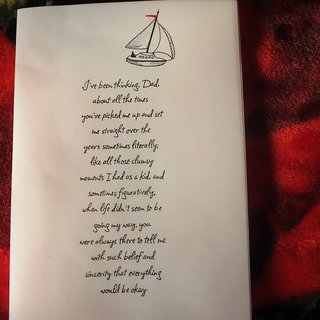 I've been thinking, Dad,
about all the times
you've picked me up and set
me straight over the
years sometimes literally,
like all those clumsy
moments I had as a kid, and
sometimes figuratively,
when life didn't seem to be
going my way, you
were always there to tell me
with such belief and
sincerity that everything
would be okay